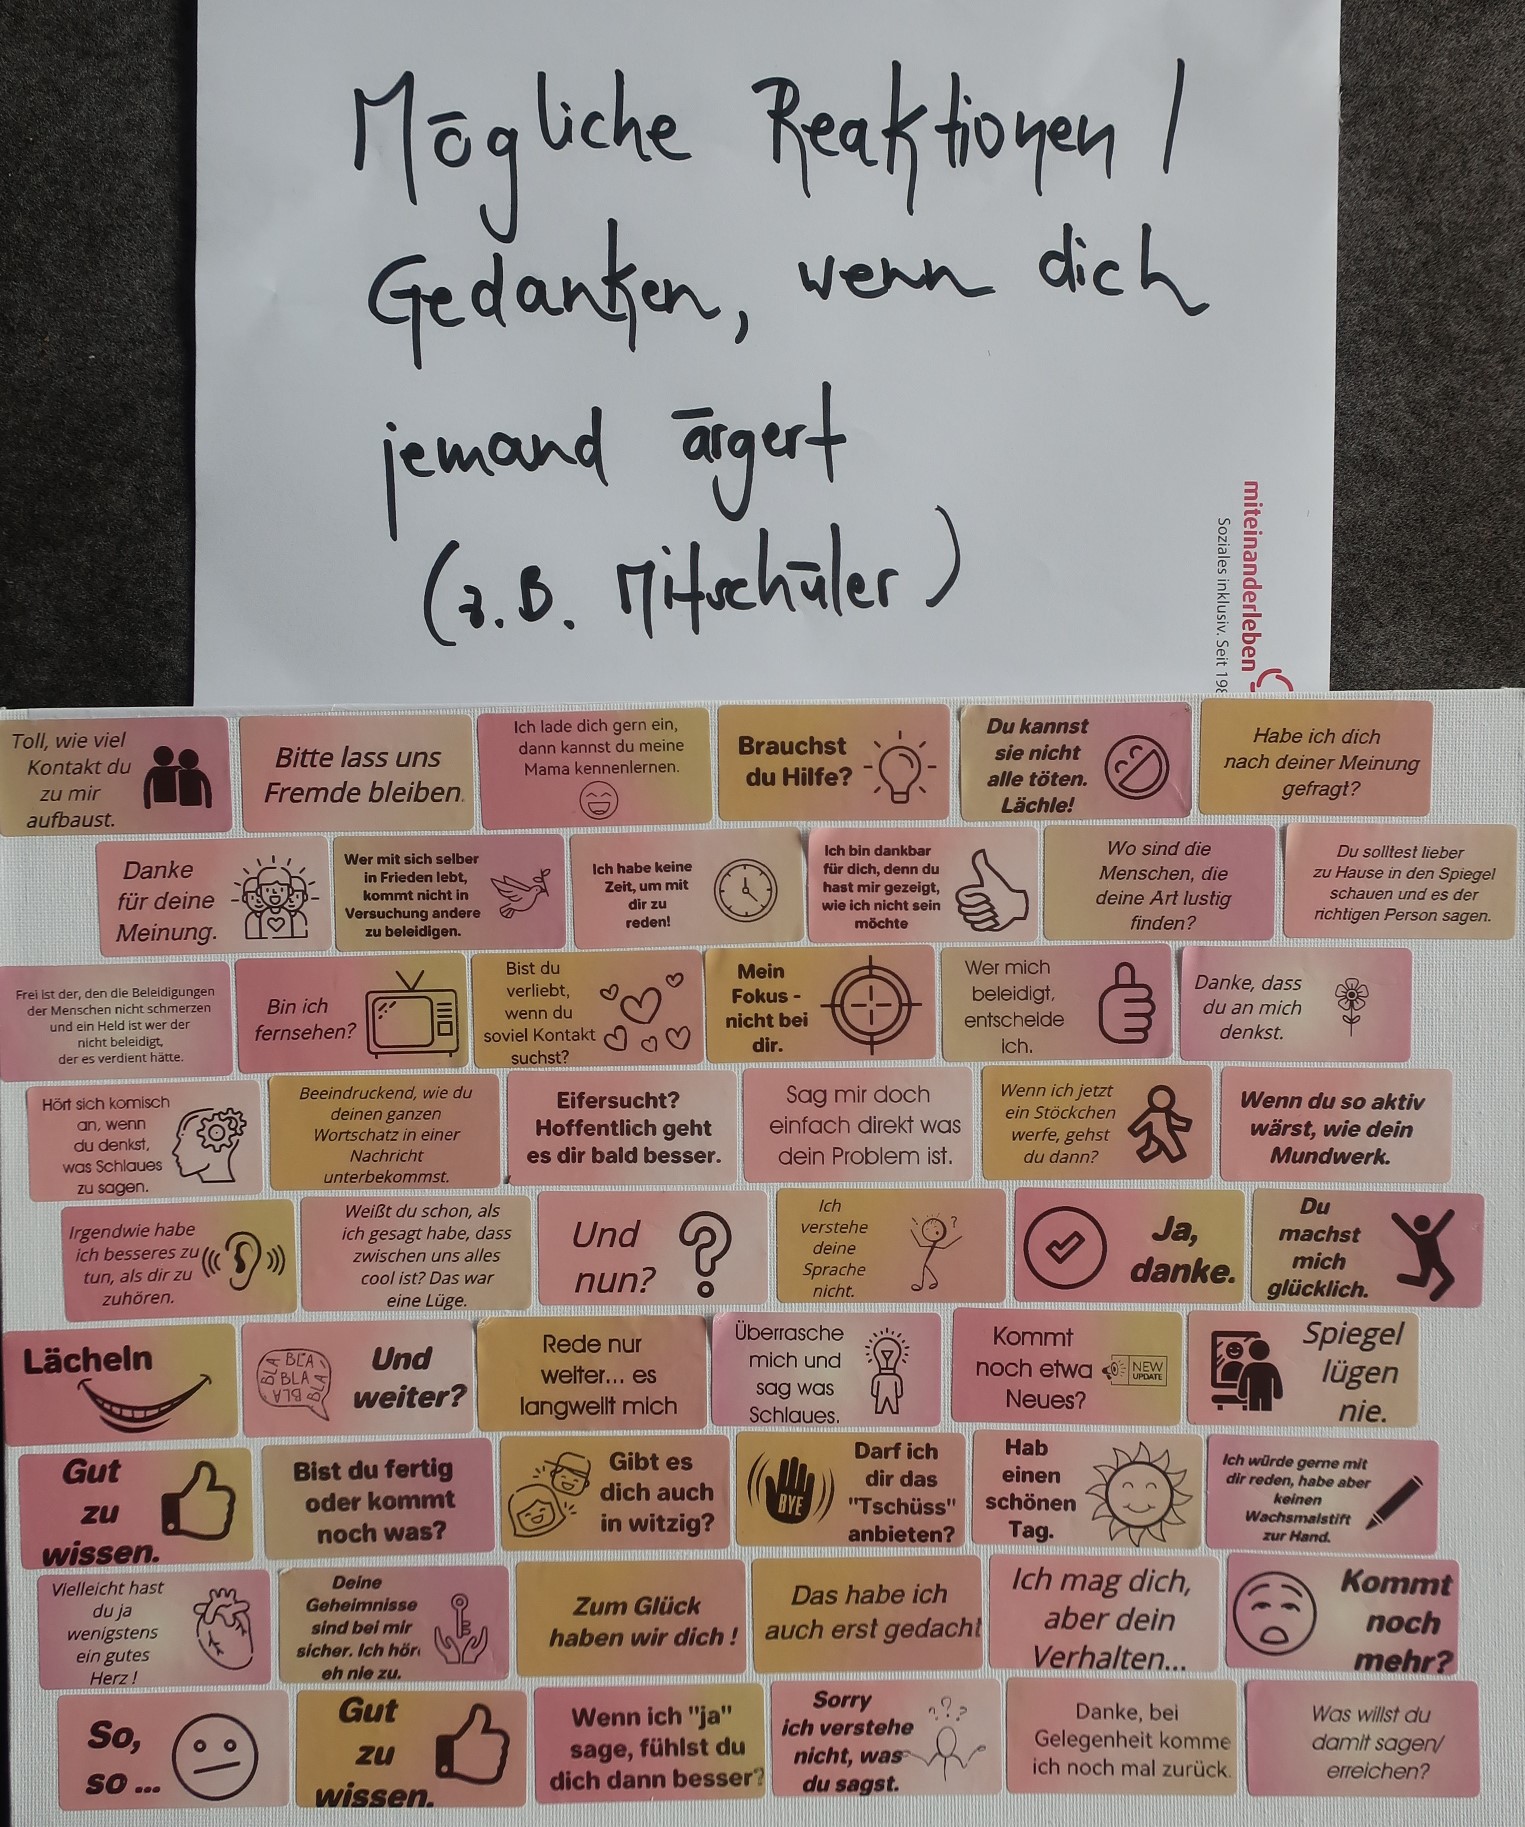 Mögliche Reaktionen /
Gedanken, wenn dich
jemand ärgert
(z.B. Mitschüler)
miteinanderleben
Soziales inklusiv. Seit 198
Toll, wie viel
Kontakt du
zu mir
aufbaust.
Bitte lass uns
Fremde bleiben.
Ich lade dich gern ein,
dann kannst du meine
Mama kennenlernen.
Brauchst
du Hilfe?
Du kannst
sie nicht
alle töten.
Lächle!
Habe ich dich
nach deiner Meinung
gefragt?
Danke
für deine
Meinung.
Wer mit sich selber
in Frieden lebt,
kommt nicht in
Versuchung andere
zu beleidigen.
Ich habe keine
Zeit, um mit
dir zu
reden!
Ich bin dankbar
für dich, denn du
hast mir gezeigt,
wie ich nicht sein
möchte
Wo sind die
Menschen, die
deine Art lustig
finden?
Du solltest lieber
zu Hause in den Spiegel
schauen und es der
richtigen Person sagen.
Frei ist der, den die Beleidigungen
der Menschen nicht schmerzen
und ein Held ist wer der
nicht beleidigt,
der es verdient hätte.
Bin ich
fernsehen?
Bist du
verliebt,
wenn du
soviel Kontakt
suchst?
Mein
Fokus -
nicht bei
dir.
Wer mich
beleidigt,
entscheide
ich.
Danke, dass
du an mich
denkst.
Hört sich komisch
an, wenn
du denkst,
was Schlaues
zu sagen.
Beeindruckend, wie du
deinen ganzen
Wortschatz in einer
Nachricht
unterbekommst.
Eifersucht?
Hoffentlich geht
es dir bald besser.
Sag mir doch
einfach direkt was
dein Problem ist.
Wenn ich jetzt
ein Stöckchen
werfe, gehst
du dann?
Wenn du so aktiv
wärst, wie dein
Mundwerk.
Irgendwie habe
ich besseres zu
tun, als dir zu
zuhören.
Weißt du schon, als
ich gesagt habe, dass
zwischen uns alles
cool ist? Das war
eine Lüge.
Und
nun?
Ich
verstehe
deine
Sprache
nicht.
Ja,
danke.
Du
machst
mich
glücklich.
Lächeln
BLA BLA BLA BLA BLA BLA
Und
weiter?
Rede nur
weiter... es
langweilt mich
Überrasche
mich und
sag was
Schlaues.
Kommt
noch etwa
Neues?
NEW
UPDATE
Spiegel
lügen
nie.
Gut
zu
wissen.
Bist du fertig
oder kommt
noch was?
Gibt es
dich auch
in witzig?
BYE
Darf ich
dir das
"Tschüss"
anbieten?
Hab
einen
schönen
Tag.
Ich würde gerne mit
dir reden, habe aber
keinen
Wachsmalstift
zur Hand.
Vielleicht hast
du ja
wenigstens
ein gutes
Herz !
Deine
Geheimnisse
sind bei mir
sicher. Ich hör
eh nie zu.
Zum Glück
haben wir dich !
Das habe ich
auch erst gedacht
Ich mag dich,
aber dein
Verhalten...
Kommt
noch
mehr?
So,
so ...
Gut
zu
wissen.
Wenn ich "ja"
sage, fühlst du
dich dann besser?
Sorry
ich verstehe
nicht, was
du sagst.
Danke, bei
Gelegenheit komme
ich noch mal zurück.
Was willst du
damit sagen/
erreichen?